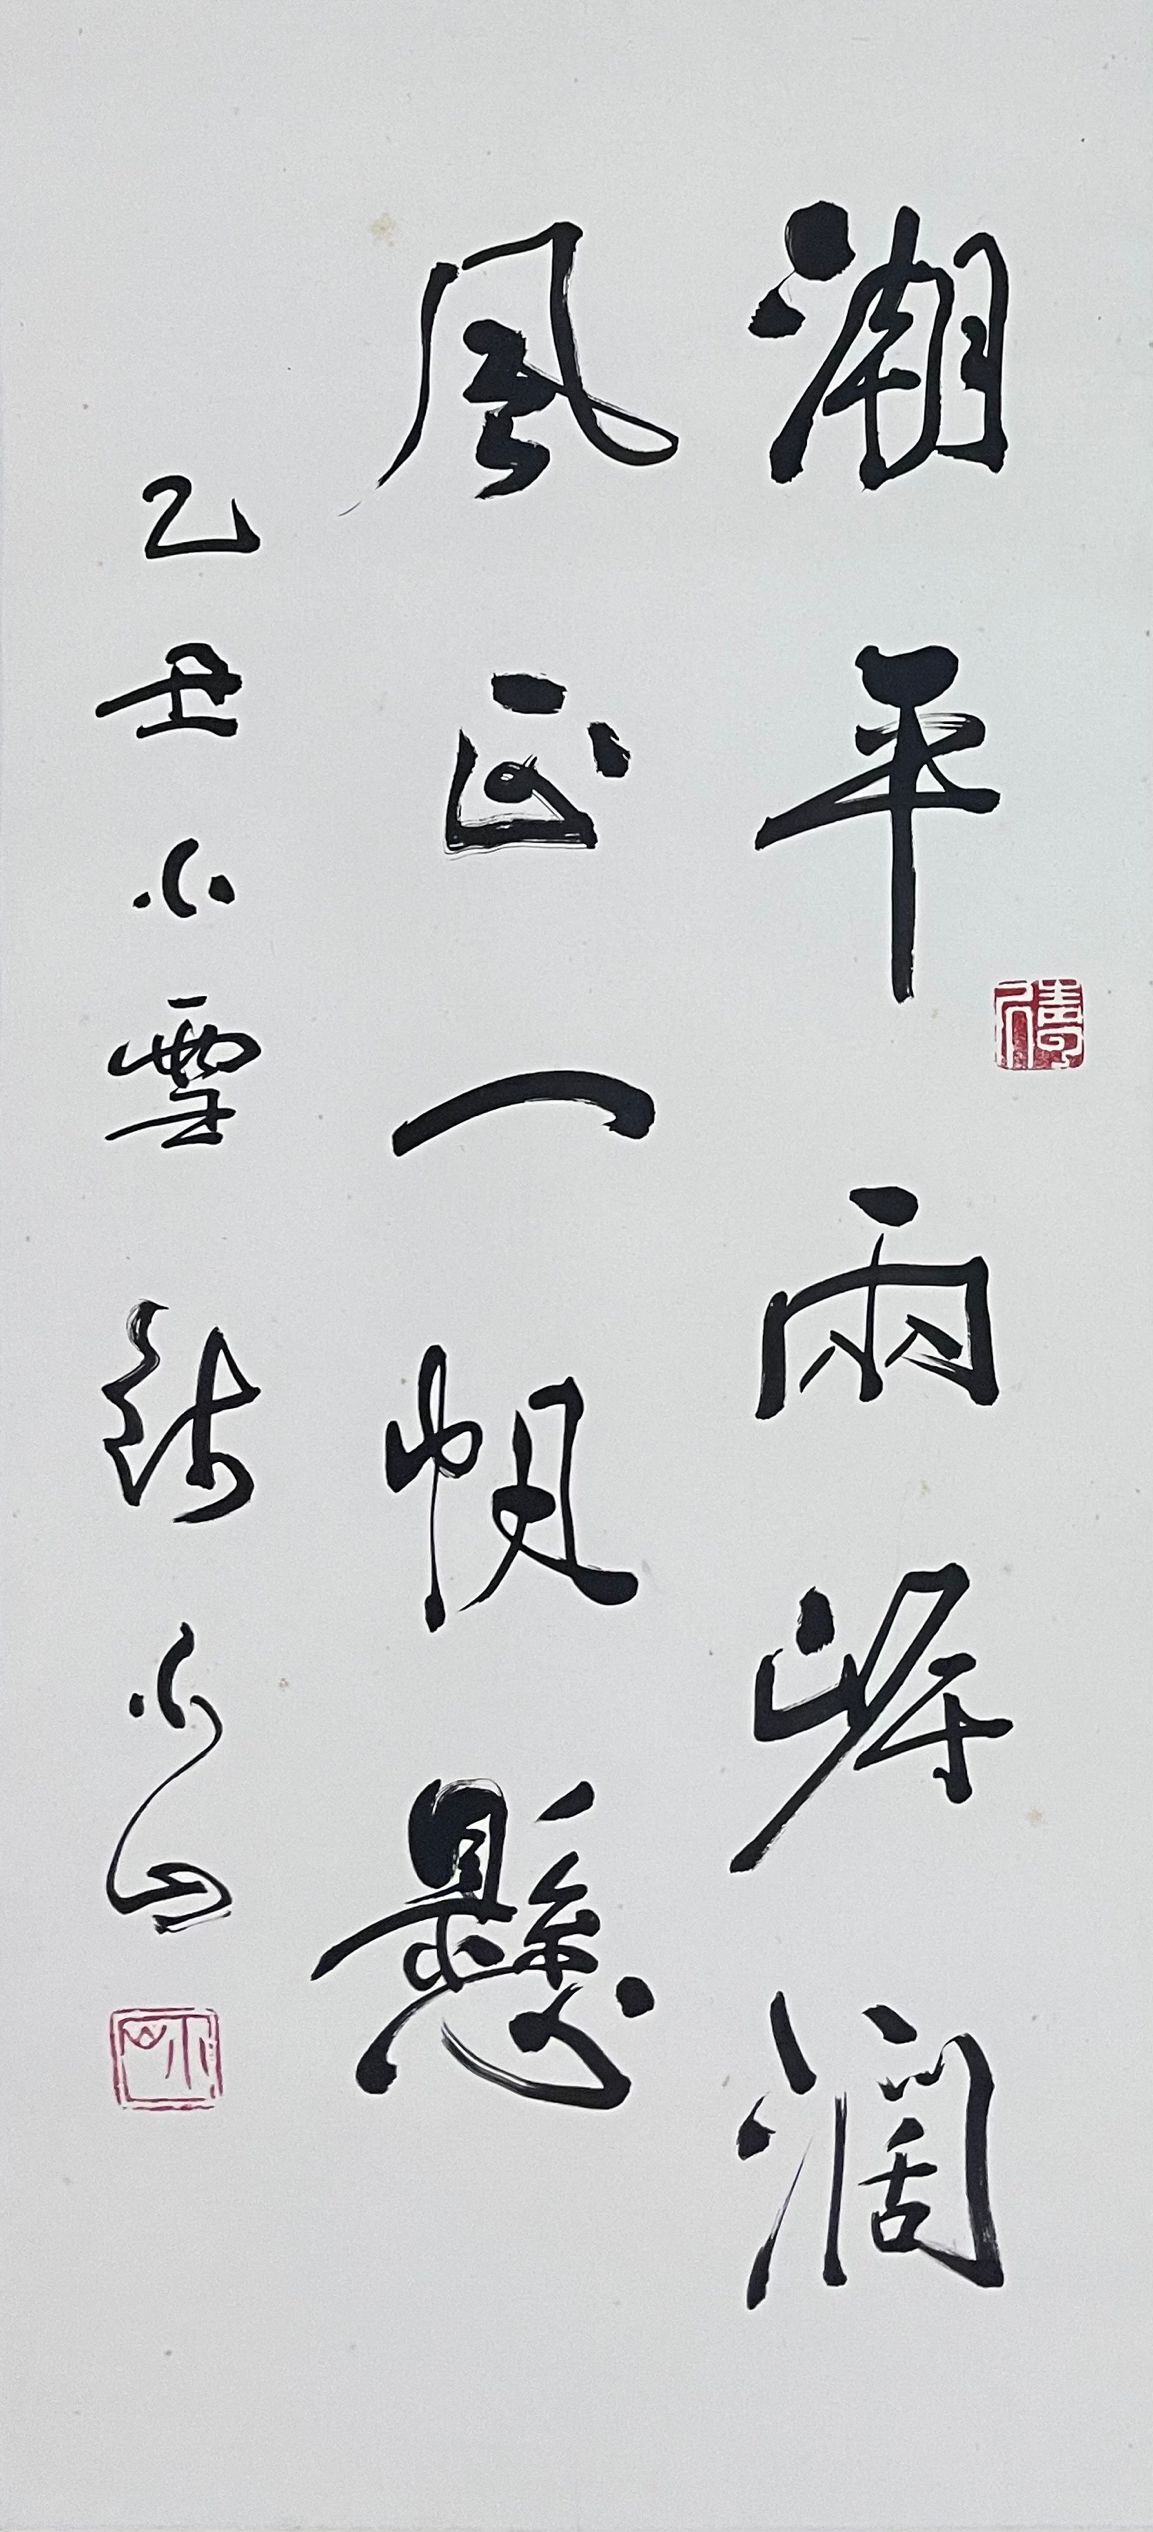 潮平兩岸闊
風正一帆懸
乙丑小雪 錢小山